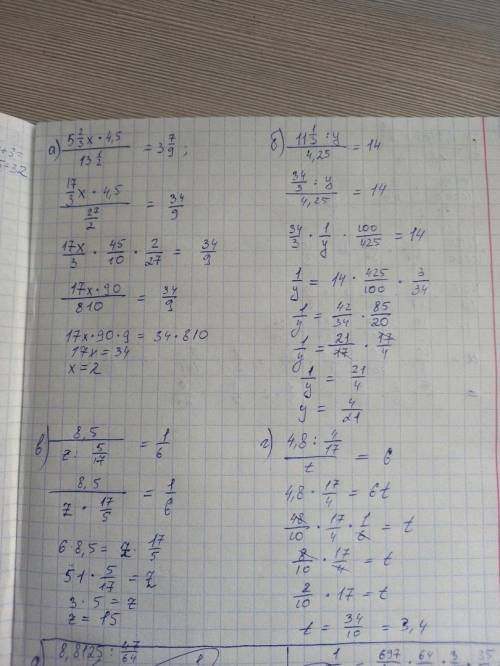 а) (5 2/3 x · 4,5)/(13 1/2) = 3 7/9 ;
(17/3 x · 4,5)/(27/2) = 34/9
17x/3 · 45/10 · 2/27 = 34/9
(17x · 90)/810 = 34/9
17x · 90 · 9 = 34 · 810
17x = 34
x = 2
б) (11 1/3 : y)/4,25 = 14
(34/3 : y)/4,25 = 14
34/3 · 1/y · 100/425 = 14
1/y = 14 · 425/100 · 3/34
1/y = 42/34 · 85/20
1/y = 21/17 · 17/4
1/y = 21/4
y = 4/21
в) 8,5/(z : 5/17) = 1/6
8,5/(z · 17/5) = 1/6
6 · 8,5 = z · 17/5
51 · 5/17 = z
3 · 5 = z
z = 15
г) (4,8 : 4/17)/t = 6
4,8 · 17/4 = 6t
48/10 · 17/4 · 1/6 = t
8/10 · 17/4 = t
2/10 · 17 = t
t = 34/10 = 3,4
8,8125 : 47/64